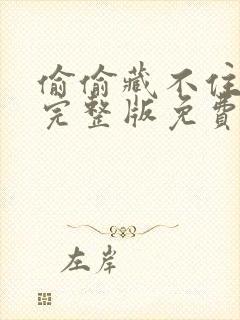 偷偷藏不住
完整版免费
左岸